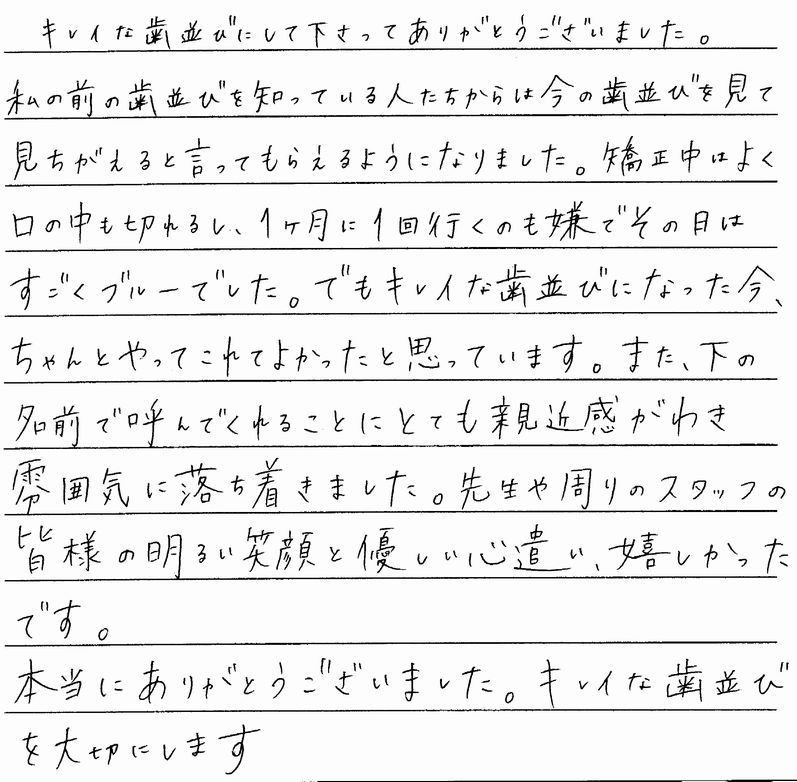 キレイな歯並びにして下さってありがとうございました。
私の前の歯並びを知っている人たちからは今の歯並びを見て
見ちがえると言ってもらえるようになりました。矯正中はよく
口の中も切れるし、1ヶ月に1回行くのも嫌でその日は
すごくブルーでした。でもキレイな歯並びになった今、
ちゃんとやってこれてよかったと思っています。また、下の
名前で呼んでくれることにとても親近感がわき
雰囲気に落ち着きました。先生や周りのスタッフの
皆様の明るい笑顔と優しい心遣い、嬉しかった
です。
本当にありがとうございました。キレイな歯並び
を大切にします